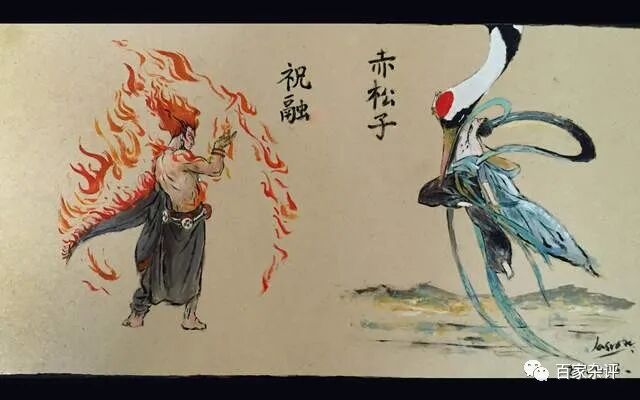 祝融
赤松子
百家杂评